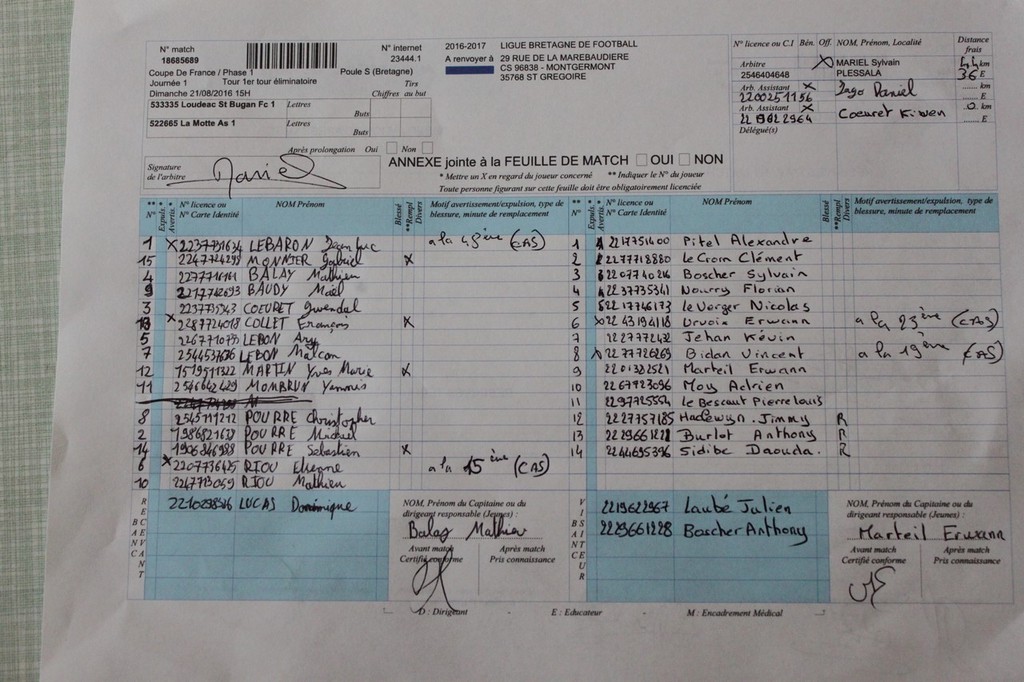 N° match
18685689
N° internet
23444.1
Coupe De France / Phase 1 Poule S (Bretagne)
Journée 1 Tour 1er tour éliminatoire
Dimanche 21/08/2016 15H
Chiffres Tirs au but
533335 Loudeac St Bugan Fc 1 Lettres
Buts
522665 La Motte As 1 Lettres
Buts
Après prolongation Oui Non
Signature de l'arbitre
2016-2017 LIGUE BRETAGNE DE FOOTBALL
A renvoyer à 29 RUE DE LA MAREBAUDIERE
CS 96838 - MONTGERMONT
35768 ST GREGOIRE
ANNEXE jointe à la FEUILLE DE MATCH OUI NON
* Mettre un X en regard du joueur concerné ** Indiquer le N° du joueur
Toute personne figurant sur cette feuille doit être obligatoirement licenciée
N° licence ou C.I Bén. Off. NOM, Prénom, Localité Distance frais
Arbitre X MARIEL Sylvain 44 km
2546404648 PLESSALA 36 E
Arb. Assistant X Daniel km
2200251156 E
Arb. Assistant X Coeuret 0 km
E
Délégué(s)
** N° * Expuls. * Avertis. N° licence ou N° Carte Identité NOM Prénom Blessé **Rempl Divers Motif avertissement/expulsion, type de blessure, minute de remplacement
1 X LEBARON Jean Luc a la 43ème (CAS)
15 MONNIER Gabriel X
4 BALAY Mathieu
9 BAUDY Maël
3 COEURET Gwendal
13 X 2287724018 COLLET François X
5 LEBON
7 LEBON Malcon
12 MARTIN Yves Marie X
11 2546642429 MONBRUN Yannis
8 POURRE Christopher
2 POURRE Michael
14 POURRE Sébastien X
6 X RIOU Etienne a la 15ème (CAS)
10 RIOU Mathieu
BANC RECEVANT
LUCAS Dominique
NOM, Prénom du Capitaine ou du dirigeant responsable (Jeunes) :
Balay Mathieu
Avant match Certifié conforme
Après match Pris connaissance
** N° * Expuls. * Avertis. N° licence ou N° Carte Identité NOM Prénom Blessé **Rempl Divers Motif avertissement/expulsion, type de blessure, minute de remplacement
1 2217751400 Pitel Alexandre
2 2277718880 Le Crom Clément
3 2207740216 Boscher Sylvain
4 2237735341 Nourry Florian
5 2217746173 Le Verger Nicolas
6 X 2243194118 Urvoix Erwann a la 23ème (CAS)
7 2227772432 Jehan Kévin
8 X 2227726269 Bidan Vincent a la 19ème (CAS)
9 2201382521 Marteil Erwann
10 2267923096 Moy Adrien
11 2297725554 Le Bescaut Pierre Louis
12 2227757185 Jimmy R
13 2229661228 Burlot Anthony R
14 2244695396 Sidibe Daouda. R
BANC VISITEUR
2219622967 Laubé Julien
2229661228 Boscher Anthony
NOM, Prénom du Capitaine ou du dirigeant responsable (Jeunes) :
Marteil Erwann
Avant match Certifié conforme
Après match Pris connaissance
D : Dirigeant - E : Educateur - M : Encadrement Médical